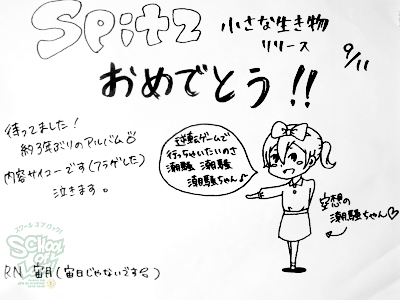 Spitz
小さな生き物
リリース
9/11
おめでとう!!
待ってました!
約3年ぶりのアルバム
内容サイコーです(フラゲした)
泣きます。
逆転ゲームで
行っちゃいたいのさ
潮騒 潮騒
潮騒ちゃん♪
空想の
潮騒ちゃん♡
スクール オブ ロック!
SCHOOL OF LOCK!
RN 宙月(宙日じゃないです)